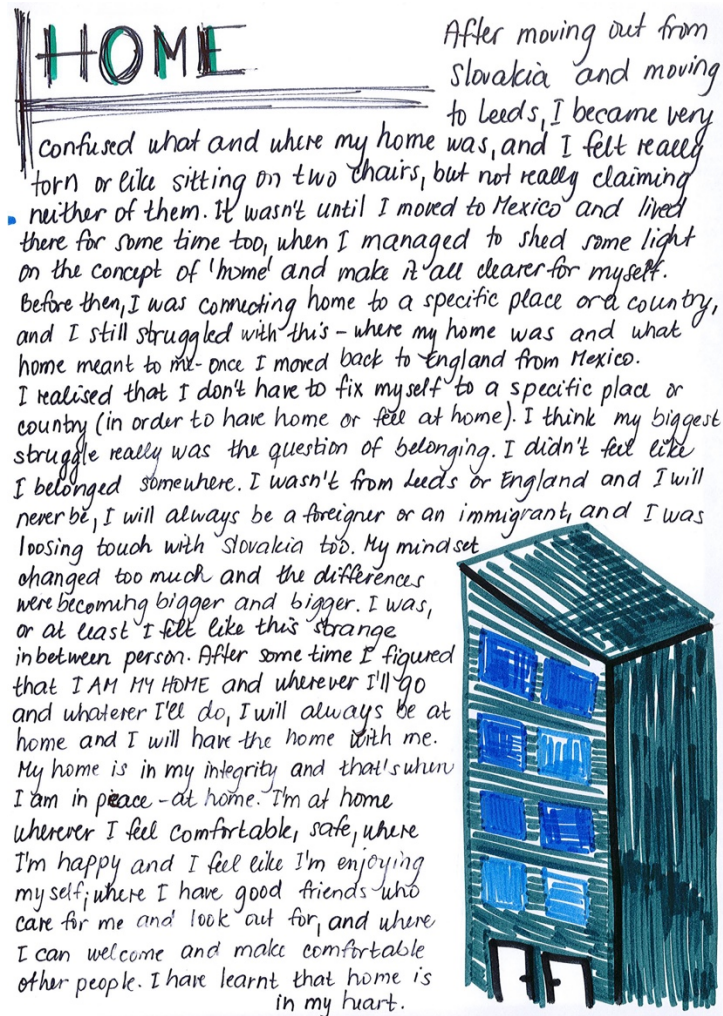 HOME
After moving out from
Slovakia and moving
to Leeds, I became very
confused what and where my home was, and I felt really
torn or like sitting on two chairs, but not really claiming
neither of them. It wasn't until I moved to Mexico and lived
there for some time too, when I managed to shed some light
on the concept of 'home' and make it all clearer for myself.
Before then, I was connecting home to a specific place or a country,
and I still struggled with this - where my home was and what
home meant to me - once I moved back to England from Mexico.
I realised that I don't have to fix myself to a specific place or
country (in order to have home or feel at home). I think my biggest
struggle really was the question of belonging. I didn't feel like
I belonged somewhere. I wasn't from Leeds or England and I will
never be, I will always be a foreigner or an immigrant, and I was
loosing touch with Slovakia too. My mindset
changed too much and the differences
were becoming bigger and bigger. I was,
or at least I felt like this strange
inbetween person. After some time I figured
that I AM MY HOME and wherever I'll go
and whatever I'll do, I will always be at
home and I will have the home with me.
My home is in my integrity and that's when
I am in peace - at home. I'm at home
wherever I feel comfortable, safe, where
I'm happy and I feel like I'm enjoying
myself; where I have good friends who
care for me and look out for, and where
I can welcome and make comfortable
other people. I have learnt that home is
in my heart.